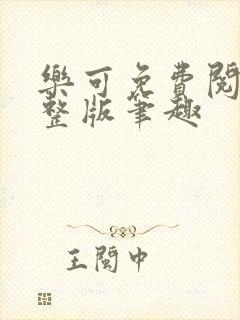 樂可免費閱
整版筆趣
王閩中